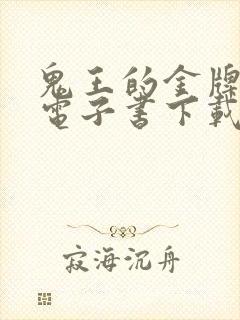 鬼王的金牌
電子書下載
寂海沉舟